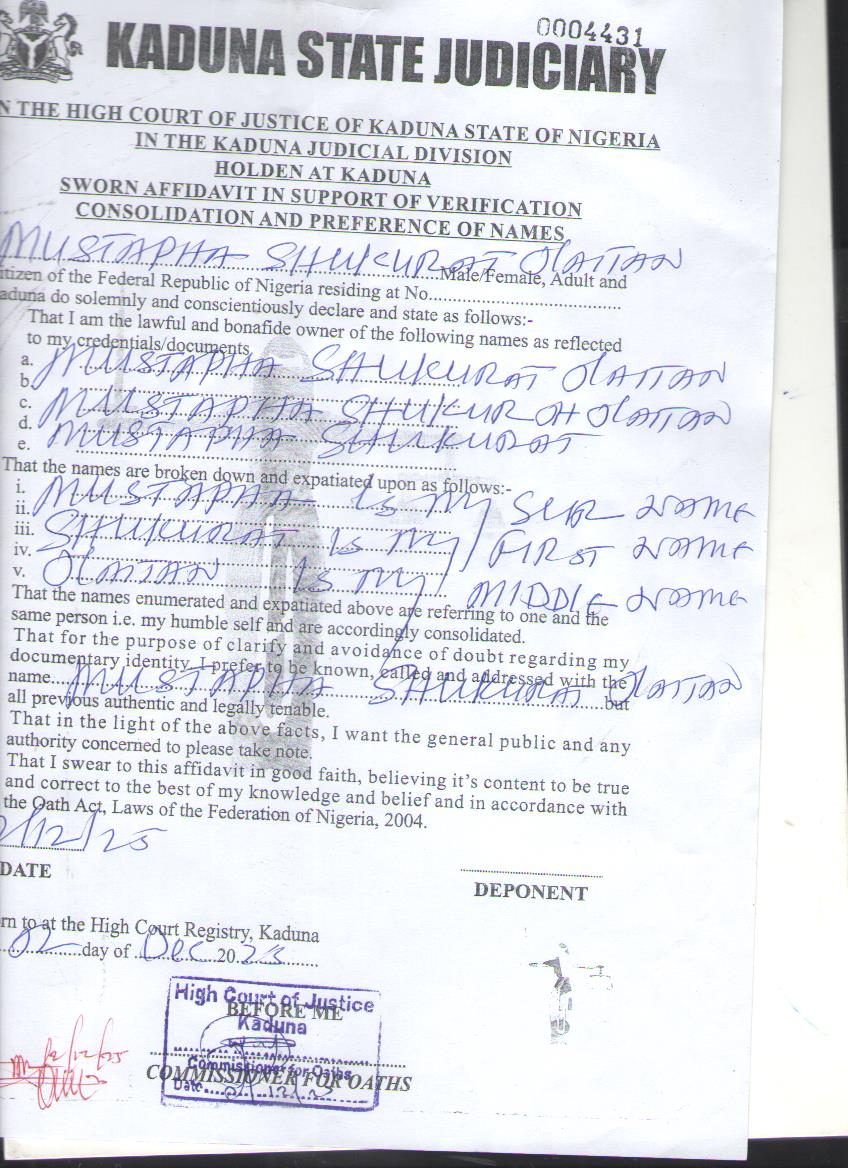 0004431
KADUNA STATE JUDICIARY
N THE HIGH COURT OF JUSTICE OF KADUNA STATE OF NIGERIA
IN THE KADUNA JUDICIAL DIVISION
HOLDEN AT KADUNA
SWORN AFFIDAVIT IN SUPPORT OF VERIFICATION
CONSOLIDATION AND PREFERENCE OF NAMES
MUSTAPHA SHUKURAT OLAITAN Male/Female, Adult and
itizen of the Federal Republic of Nigeria residing at No
aduna do solemnly and conscientiously declare and state as follows:-
That I am the lawful and bonafide owner of the following names as reflected
to my credentials/documents
a. MUSTAPHA SHUKURAT OLAITAN
b.
c. MUSTAPHA SHUKUROH OLAITAN
d. MUSTAPHA SHUKURAT
e.
That the names are broken down and expatiated upon as follows:-
i. MUSTAPHA Is my SUR NAME
ii.
iii. SHUKURAT Is my FIRST NAME
iv.
v. OLAITAN Is my MIDDLE NAME
That the names enumerated and expatiated above are referring to one and the
same person i.e. my humble self and are accordingly consolidated.
That for the purpose of clarify and avoidance of doubt regarding my
documentary identity, I prefer to be known, called and addressed with the
name MUSTAPHA SHUKURAT OLAITAN but
all previous authentic and legally tenable.
That in the light of the above facts, I want the general public and any
authority concerned to please take note.
That I swear to this affidavit in good faith, believing it's content to be true
and correct to the best of my knowledge and belief and in accordance with
the Oath Act, Laws of the Federation of Nigeria, 2004.
2/12/25
DATE
DEPONENT
rn to at the High Court Registry, Kaduna
02 day of Dec 20
High Court of Justice
BEFORE ME
Kaduna
Commissioner for Oaths
COMMISSIONER FOR OATHS
Date
2/12/25